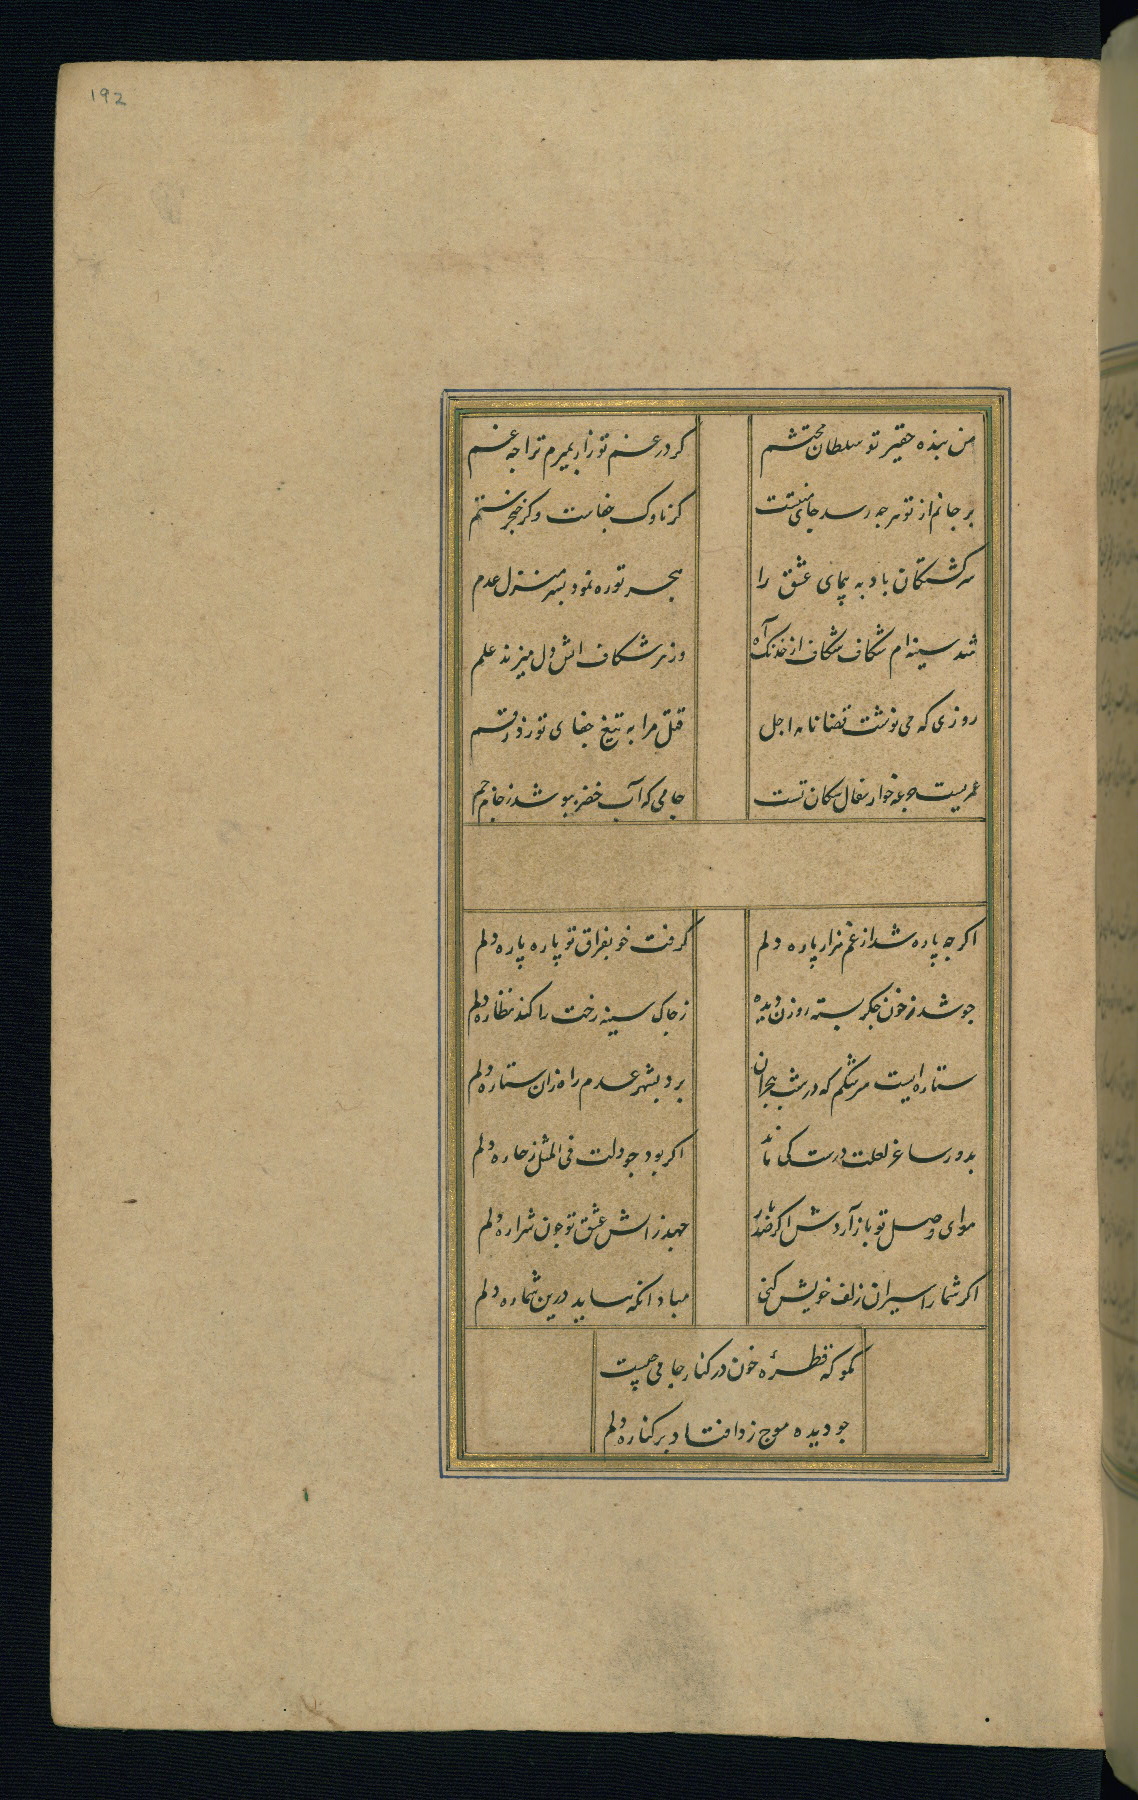 192
من بنده حقیر تو سلطان محتشم کر در غم تو زار بمیرم ترا جه غم
بر جانم از تو هر جه رسد جای منتست کر ناوک جفاست وکر خنجر ستم
سرکشتکان بادیه پیمای عشق را هجر تو ره نمود بسر منزل عدم
شد سینه ام شکاف شکاف از خدنک آه وز هر شکاف اتش دل میزند علم
روزی که می نوشت قضا نامه اجل قتل مرا به تیغ جفای تو زد رقم
عمریست جرعه خوار سفال سکان تست جامی که آب خضر ننوشد ز جام جم
اکر جه پاره شد از غم هزار پاره دلم کرفت خو بفراق تو پاره پاره دلم
جو شد ز خون جکر بسته روزن دیده ز جاک سینه رخت را کند نظاره دلم
ستاره ایست سرشکم که در شب هجران برد بشهر عدم راه زان ستاره دلم
بدور ساغر لعلت درست کی ماند اکر بود جو دلت فی المثل ز خاره دلم
هوای وصل تو باز آردش اکر صد بار جهد ز اتش عشق تو جون شراره دلم
اکر شمار اسیران زلف خویش کنی مباد انکه نیاید درین شماره دلم
مکو که قطره خون در کنار جامی جیست
جو دیده موج زد افتاد بر کناره دلم